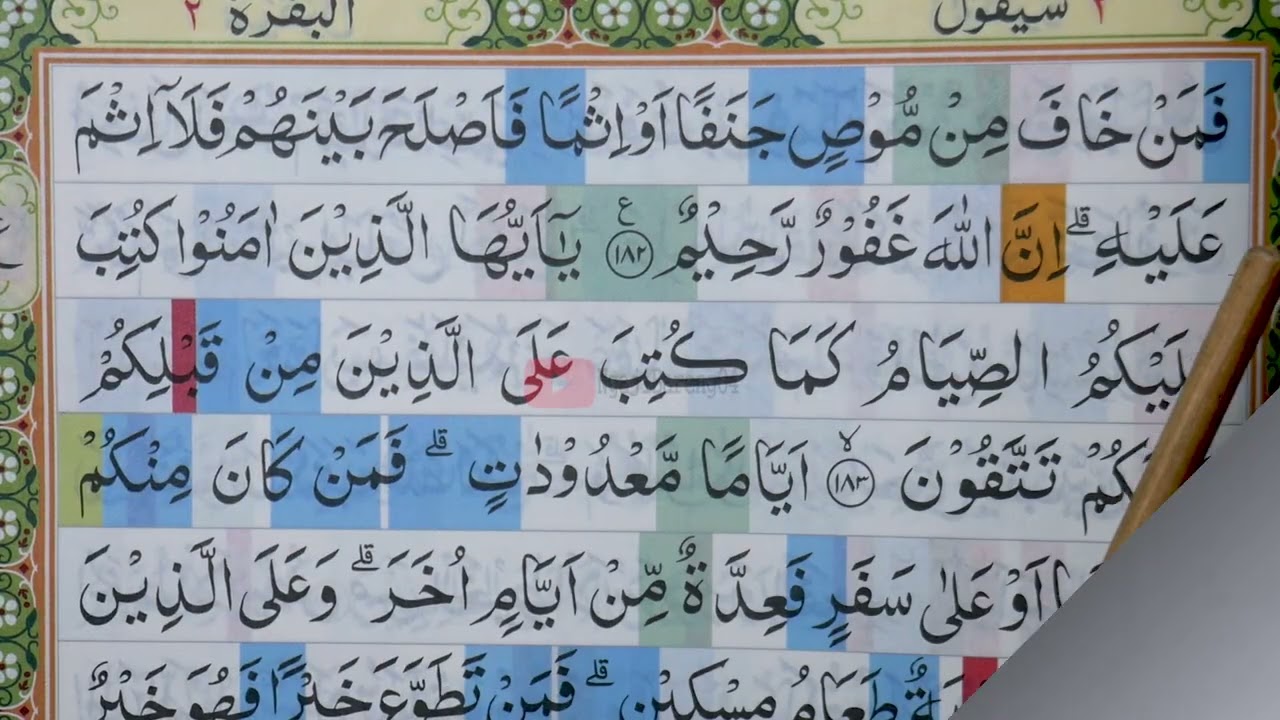 سيقول ٢ البقرة ٢
فَمَنْ خَافَ مِنْ مُّوْصٍ جَنَفًا اَوْ اِثْمًا فَاَصْلَحَ بَيْنَهُمْ فَلَآ اِثْمَ
عَلَيْهِ ۗ اِنَّ اللّٰهَ غَفُوْرٌ رَّحِيْمٌ ࣖ ١٨٢ يٰٓاَيُّهَا الَّذِيْنَ اٰمَنُوْا كُتِبَ
الصِّيَامُ كَمَا كُتِبَ عَلَى الَّذِيْنَ مِنْ قَبْلِكُمْ
تَتَّقُوْنَ ۙ ١٨٣ اَيَّامًا مَّعْدُوْدٰتٍ ۗ فَمَنْ كَانَ مِنْكُمْ
اَوْ عَلٰى سَفَرٍ فَعِدَّةٌ مِّنْ اَيَّامٍ اُخَرَ ۗ وَعَلَى الَّذِيْنَ
طَعَامُ مِسْكِيْنٍ ۗ فَمَنْ تَطَوَّعَ خَيْرًا فَهُوَ خَيْرٌ